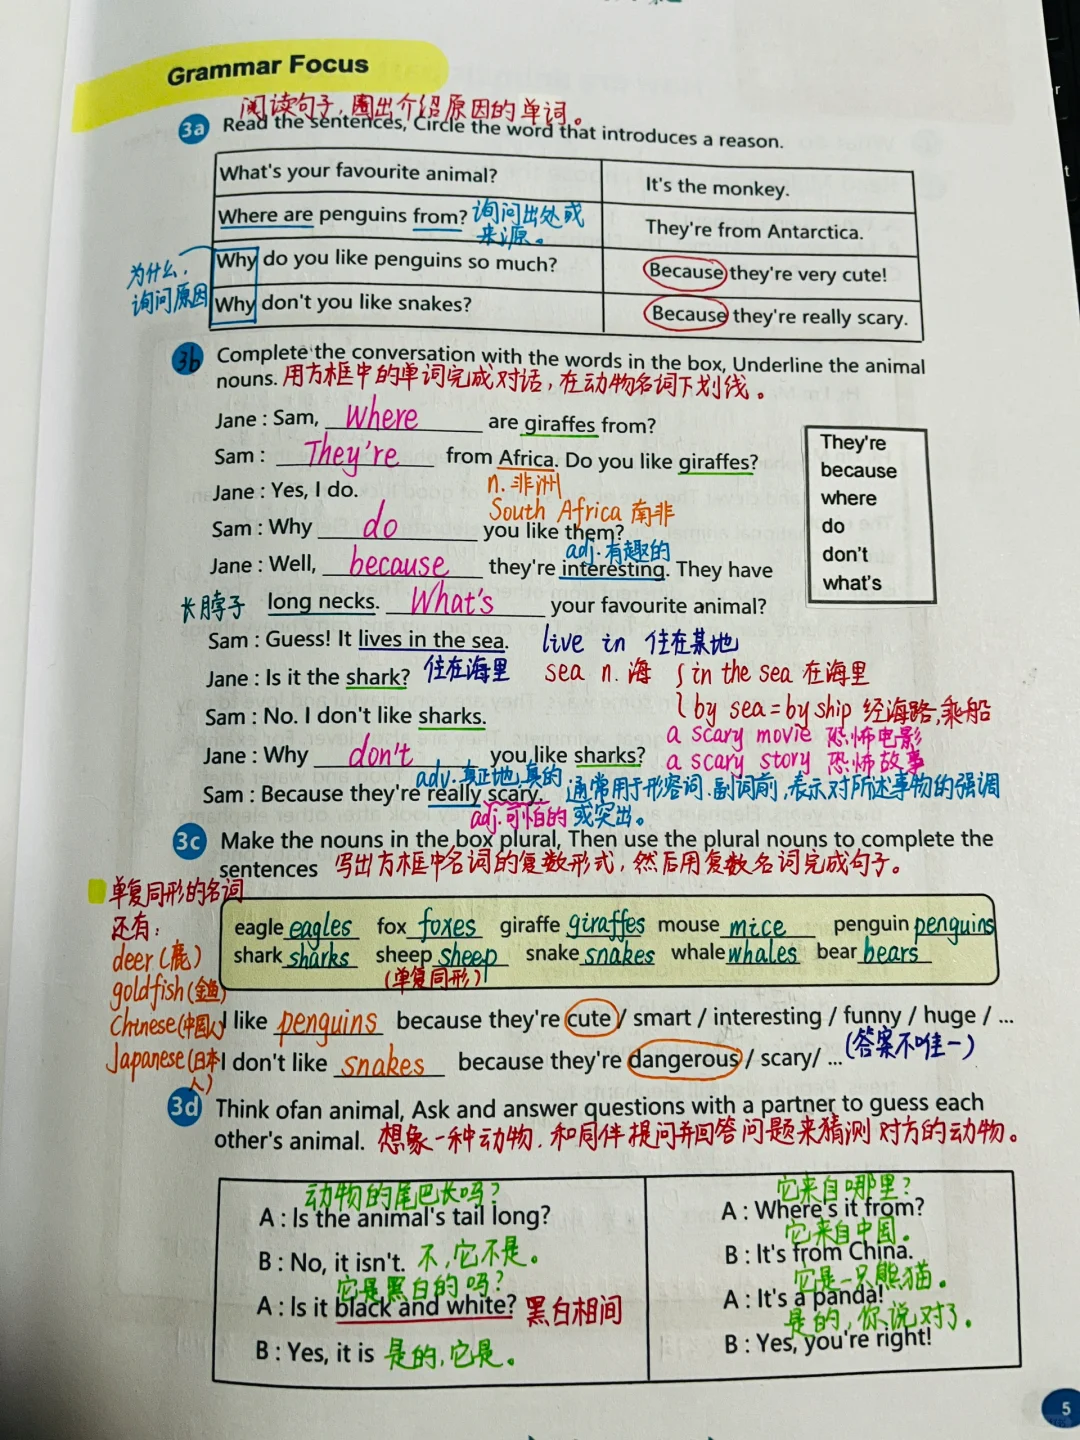 Grammar Focus
阅读句子，圈出介绍原因的单词。
3a Read the sentences, Circle the word that introduces a reason.
What's your favourite animal? It's the monkey.
Where are penguins from? 询问出处或来源。 They're from Antarctica.
为什么，询问原因
Why do you like penguins so much? Because they're very cute!
Why don't you like snakes? Because they're really scary.
3b Complete the conversation with the words in the box, Underline the animal
nouns. 用方框中的单词完成对话，在动物名词下划线。
Jane : Sam, Where are giraffes from?
Sam : They're from Africa. Do you like giraffes?
Jane : Yes, I do. n. 非洲
South Africa 南非
Sam : Why do you like them?
adj. 有趣的
Jane : Well, because they're interesting. They have
长脖子 long necks. What's your favourite animal?
They're
because
where
do
don't
what's
Sam : Guess! It lives in the sea. live in 住在某地
Jane : Is it the shark? 住在海里 sea n. 海 { in the sea 在海里
Sam : No. I don't like sharks. by sea = by ship 经海路,乘船
a scary movie 恐怖电影
Jane : Why don't you like sharks? a scary story 恐怖故事
adv. 真正地,真的 通常用于形容词.副词前,表示对所述事物的强调
Sam : Because they're really scary.
adj.可怕的 或突出。
3c Make the nouns in the box plural, Then use the plural nouns to complete the
sentences 写出方框中名词的复数形式，然后用复数名词完成句子。
单复同形的名词
还有：
deer (鹿)
goldfish (金鱼)
Chinese (中国人)
Japanese (日本人)
eagle eagles fox foxes giraffe giraffes mouse mice penguin penguins
shark sharks sheep sheep snake snakes whale whales bear bears
(单复同形)
I like penguins because they're cute / smart / interesting / funny / huge / ...
I don't like snakes because they're dangerous / scary/ ... (答案不唯一)
3d Think ofan animal, Ask and answer questions with a partner to guess each
other's animal. 想象一种动物，和同伴提问并回答问题来猜测对方的动物。
动物的尾巴长吗？
A : Is the animal's tail long?
B : No, it isn't. 不,它不是。
它是黑白的吗？
A : Is it black and white? 黑白相间
B : Yes, it is 是的,它是。
它来自哪里？
A : Where's it from?
它来自中国。
B : It's from China.
它是一只熊猫。
A : It's a panda!
是的，你说对了。
B : Yes, you're right!
5